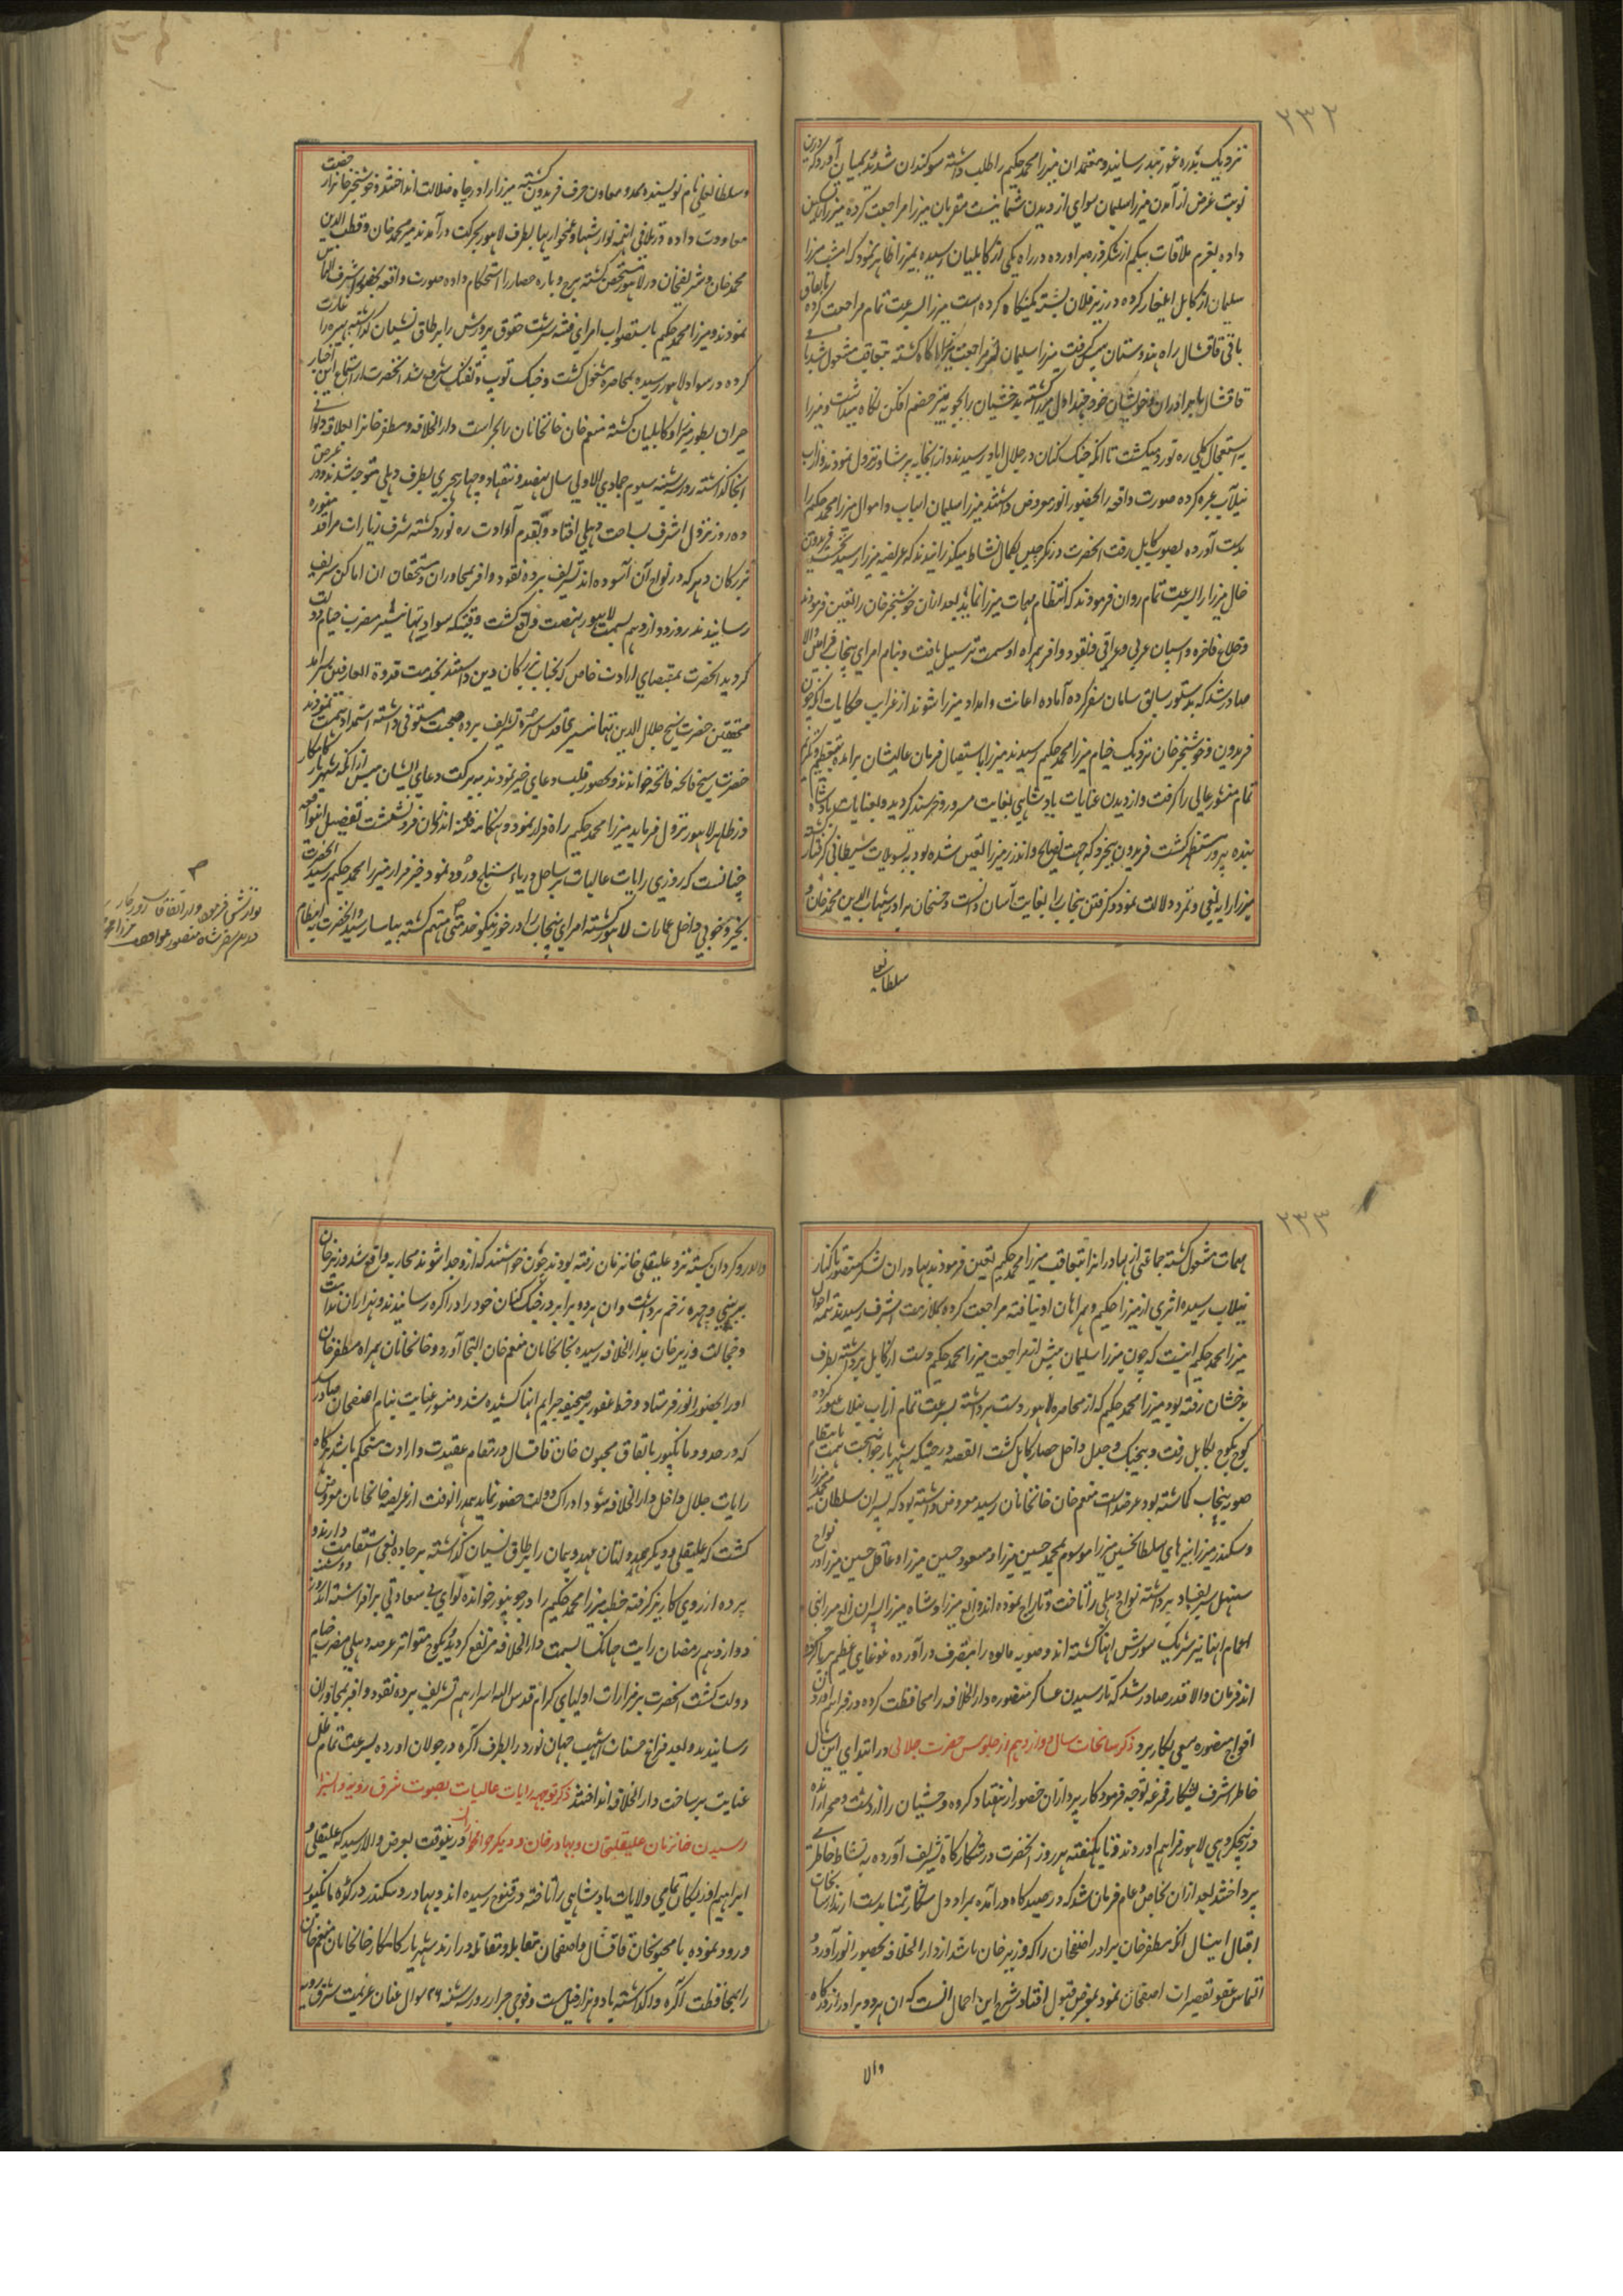 ۲۳۲
نزدیک بدره غوربند رسانیده معتمدان میرزا محمد حکیم را طلب داشته سوکندان شدید بمیان آورد که درین
نوبت غرض از آمدن میرزا سلیمان سوای از دیدن شما نیست مقربان میرزا مراجعت کرده میرزا را تسکین
داده بعزم ملاقات بیکم از شکر دره براورده در راه یکی از کابلیان رسیده بمیرزا ظاهر نمود که امشب میرزا
سلیمان از کابل ایلغار کرده در زیر فلان پشته کمینکاه کرده است میرزا بسرعت تمام مراجعت کرده باتفاق
باقی قاقشال راه هندوستان پیش کرفت میرزا سلیمان از مراجعت میرزا آکاه کشته بتعاقب مشغول شد باقی
قاقشال با برادران و خویشان خود چنداول میرزا کشته بدخشیان را بحوبه تیر خصم افکن نکاه میداشت و میرزا
به استعجال کلی ره نورد میکشت تا انکه جنک کنان در جلال اباد رسیدند و از انجا به پرشاور نزول نمودند و از اب
نیلاب عبره کرده صورت واقعه را بحضور انور معروض داشتند میرزا سلیمان اسباب و اموال میرزا محمد حکیم را
بدست آورده بصوب کابل رفت انحضرت در نکرچین بکمال نشاط میکذرانیدند که عریضه میرزا رسید بحسب فریدون
خال میرزا را بسرعت تمام روان فرمودند که انتظام مهمات میرزا نماید بعد ازان خوشخبر خان را تعین فرمودند
و خلاع فاخره و اسپان عربی و عراقی و نقود وافر همراه او سمت ترسیل یافت و بنام امرای پنجاب فرامین والا
صادر شد که بدستور سابق سامان سفر کرده آماده اعانت و امداد میرزا شوند از غرایب حکایات انکه چون
فریدون و خوشخبر خان نزدیک خیام میرزا محمد حکیم رسیدند میرزا باستقبال فرمان عالیشان برامده بتعظیم و تکریم
تمام منشور عالی را کرفت و از دیدن عنایات پادشاهی بغایت مسرور و خرسند کردید و بعنایات پادشاه
بنده پرور مستظهر کشت فریدون بیخرد که جهت نصایح و اندرز میرزا تعین شده بود به تسویلات شیطانی کرفتار کشته
میرزا را بر بغی و تمرد دلالت نمود و کرفتن پنجاب را بغایت آسان دانست و حسنخان برادر شهاب الدین محمد خان و
سلطانعلی
و سلطانعلی نام نویسنده ممد و معاون حرف فریدون کشته میرزا را در چاه ضلالت انداختند و خوشخبر خانرا رخصت
معاودت داده در تلافی انهمه نوازشها و غمخواریها بطرف لاهور بحرکت درآمدند میر محمد خان و قطب الدین
محمد خان و شریفخان در لاهور متحصن کشته برج و باره حصار را استحکام داده صورت واقعه بحضور اشرف التماس
نمودند و میرزا محمد حکیم باستصواب امرای فتنه سرشت حقوق پرورش را بر طاق نسیان کذاشته بهیره را غارت
کرده در سواد لاهور رسیده بمحاصره مشغول کشت و جنک توپ و تفنک شروع شد انحضرت از استماع این اخبار
حیران بطور میرزا و کابلیان کشته منعم خان خانخانان را بحراست دارالخلافه و مظفر خانرا بعلاقه دیوانی
انجا کذاشته روز شنبه سیوم جمادی الاولی سال نهصد و هفتاد و چهار هجری بطرف دهلی متوجه شدند و در عرض
ده روز نزول اشرف بساحت دهلی افتاد و بقدم آوادت ره نورد کشته شرف زیارات مراقد منوره
بزرکان دهر که در نواح آن آسوده اند تشریف برده نقود وافر بمجاوران و مستحقان ان اماکن شریف
رسانیدند روز دوازدهم بسمت لاهور نهضت واقع کشت وقتیکه سواد تهانیسر مضرب خیام دولت
کردید انحضرت بمقتضای ارادت خاص که بجناب بزرکان دین داشتند بخدمت قدوة العارفین سرامد
محققین حضرت شیخ جلال الدین تهانیسری قدس سره تشریف برده صحبت مستوفی داشته استمداد همت نمودند
حضرت شیخ فاتحه خوانده و بحضور قلب دعای خیر نمودند ببرکت دعای ایشان پیش از انکه شهریار کامکار
در ظاهر لاهور نزول فرماید میرزا محمد حکیم راه فرار نمود و هنکامه فتنه اندکان فرو نشست تفصیل این واقعه
چنانست که روزی رایات عالیات بر ساحل دریاء ستلج ورود نمود خبر فرار میرزا محمد حکیم رسید انحضرت
بخیر و خوبی داخل عمارات لاهور کشته امرای پنجاب را در خور نیکو خدمتی متهم کشته بپاسا رسید و انحضرت به انتظام
۲۳۳
مهمات مشغول کشته جماعتی از بهادرانرا بتعاقب میرزا محمد حکیم تعین فرمودند بهادران لشکر منصور تا کنار
نیلاب رسیده اثری از میرزا حکیم و همراهان او نیافته مراجعت کرده بملازمت اشرف رسیدند تتمه احوال
میرزا محمد حکیم اینست که چون میرزا سلیمان پیش از مراجعت میرزا محمد حکیم دست از کابل برداشته بطرف
بدخشان رفته بود میرزا محمد حکیم که از محاصره لاهور دست برداشته بسرعت تمام از اب نیلاب عبور کرده
کوچ بکوچ بکابل رفت و بیجنک و جدل داخل حصار کابل کشت القصه در حینیکه شهریار جوانبخت همت بانتظام
صوبه پنجاب کماشته بود عرضداشت منعم خان خانخانان رسید معروض داشته بود که پسران سلطان محمد میرزا
و سکندر میرزا نبیرهای سلطانحسین میرزا موسوم بمحمد حسین میرزا و مسعود حسین میرزا و عاقل حسین میرزا در نواح
سنبهل سر بفساد برداشته نواح دهلی را تاخت و تاراج نموده اند و الغ میرزا و شاه میرزا پسران الغ میرزا نبی
اعمام اینها نیز شریک شورش اینها کشته اند و صوبه مالوه را بتصرف درآورده غوغای عظیم برپا کرده
اند فرمان والاقدر صادر شد که تا رسیدن عساکر منصوره دارالخلافه را محافظت کرده در فراهم آوردن
افواج منصوره سعی بکار برد ذکر سانحات سال دوازدهم از جلوس حضرت جلالی در ابتدای این سال
خاطر اشرف بشکار قمرغه توجه فرمود کار پردازان حضور از هفتاد کروه وحشیان را از دشت و صحرا رانده
در پنجکروهی لاهور فراهم اوردند و تا یکهفته هر روز انحضرت در شکارکاه تشریف آورده به نشاط خاطر می
پرداختند بعد ازان بخاص و عام فرمان شد که در صیدکاه درآمده بمراد دل شکار تمنا بدست ارند از سانحات
اقبال اینسال انکه مظفر خان برادر آصفخان را که وزیر خان باشد از دارالخلافه بحضور انور آورد و
التماس عفو تقصیرات اصفخان نمود بمعرض قبول افتاد شرح این احمال انست که ان هردو برادر از درکاه
والا
والا رو کردان کشته نزد علیقلی خانزمان رفته بودند چون خواستند که از و جدا شوند محاربه واقع شد وزیر خان
بر بینی و چهره زخم برداشت وان هر دو برابر در جنک کنان خود را در آکره رسانیدند و هزاران ندامت
و خجالت وزیر خان بدارالخلافه رسیده بخانخانان منعم خان التجا آورد و خانخانان همراه مظفر خان
او را بحضور انور فرستاد و خط عفو بر صحیفه جرایم اینها کشیده شد و منشور عنایت بنام اصفخان صادر شد
که در حدود مانکپور باتفاق مجنون خان قاقشال در مقام عقیدت و ارادت مستحکم باشد هرکاه
رایات جلال داخل دارالخلافه شود ادراک دولت حضور نماید همدرانوقت از عریضه خانخانان معروض
کشت که علیقلی و دیکر عهدوپیمان عهد و پیمان را بر طاق نسیان کذاشته بر جاده بغی استقامت دارند و
پرده از روی کار برکرفته خطبه میرزا محمد حکیم را در جونپور خوانده لوای بی سعادتی برافراشته اند روز دوشنبه
دوازدهم رمضان رایت جهانکشا بسمت دارالخلافه مرتفع کردید و کوچ متواتر عرصه دهلی مضرب خیام
دولت کشت انحضرت بر مزارات اولیای کرام قدس الله اسرارهم تشریف برده نقود وافر بمجاوران
رسانیدند و بعد فراغ حسنات اشهب جهان نورد را بطرف آکره در جولان آورده بسرعت تمام ظل
عنایت بر ساحت دارالخلافه انداختند ذکر توجه رایات عالیات بصوب شرق رویه و بسزا
رسیدن خانزمان علیقلیخان و بهادر خان و دیکر حرامخواران درینوقت بعرض والا رسید که علیقلی و
ابراهیم اوزبکان تمامی ولایات پادشاهی را تاخته در قنوج رسیده اند و بهادر و سکندر در کره مانکپور
ورود نموده با مجنونخان قاقشال و اصفخان مقابله و مقاتله دارند شهریار کامکار خانخانان منعم خان
را بمحافظت آکره واکذاشته با دو هزار فیل مست و فوجی جرار روز شنبه ۲۶ شوال عنان عزیمت شرق رویه